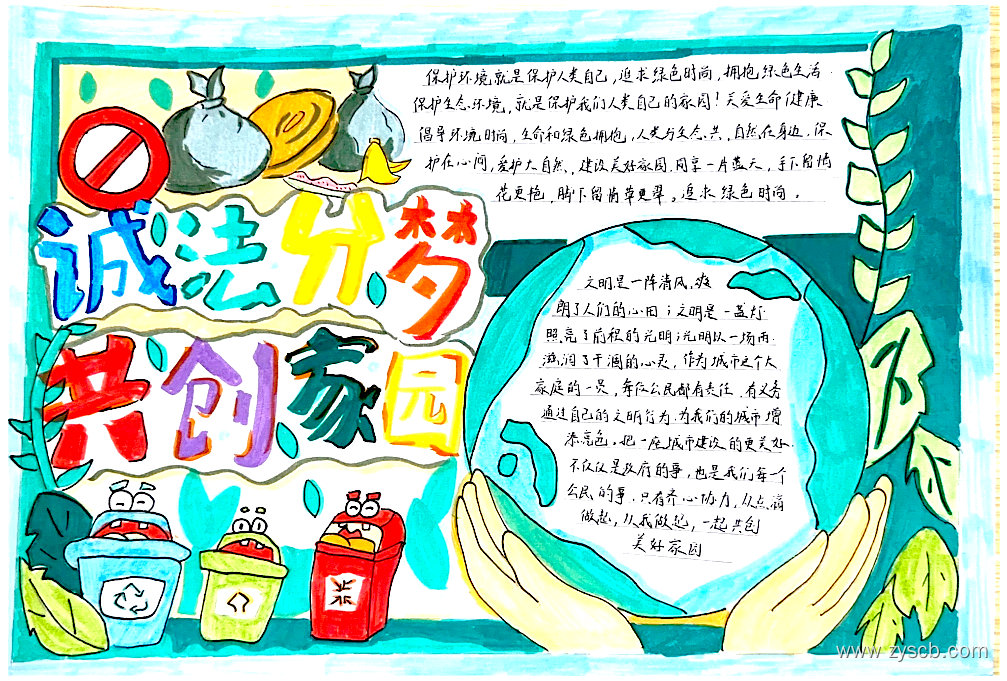 保护环境就是保护人类自己，追求绿色时尚，拥抱绿色生活.
保护生态环境，就是保护我们人类自己的家园！关爱生命健康
倡导环境时尚，生命和绿色拥抱，人类与生态共，自然在身边，保
护在心间，爱护大自然，建设美好家园.同享一片蓝天，手下留情
花更艳，脚下留情草更翠，追求绿色时尚。
诚法分梦
共创家园
文明是一阵清风,爽
朗了人们的心田；文明是一盏灯
照亮了前程的光明；文明以一场雨
滋润了干涸的心灵，作为城市这个大
家庭的一员，每位公民都有责任，有义务
通过自己的文明行为，为我们的城市增
添亮色。把一座城市建设的更美好
不仅仅是政府的事，也是我们每一个
公民的事.只有齐心协力，从点滴
做起，从我做起，一起共创
美好家园
www.zyscb.com